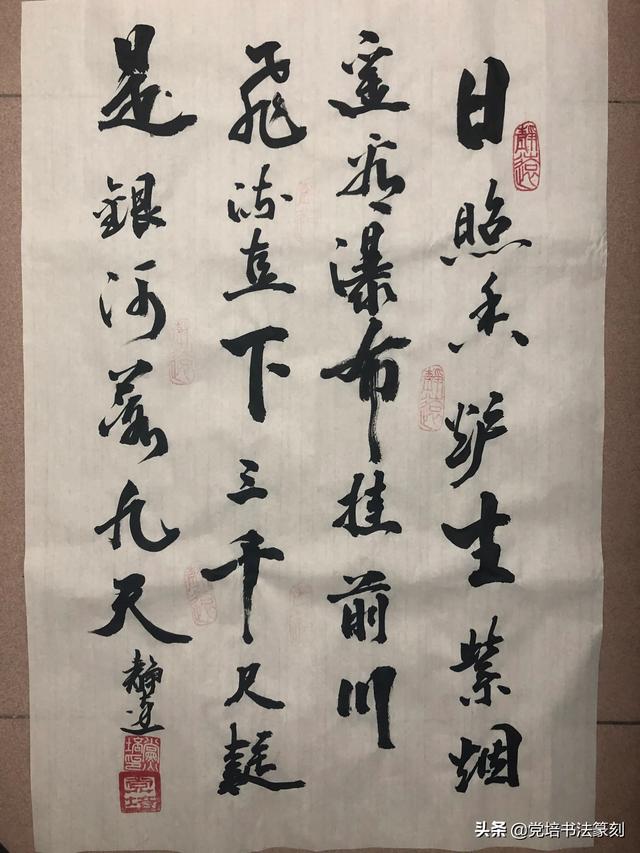 日照香炉生紫烟
遥看瀑布挂前川
飛流直下三千尺疑
是銀河落九天
静远
静遠
头条 @党培书法篆刻